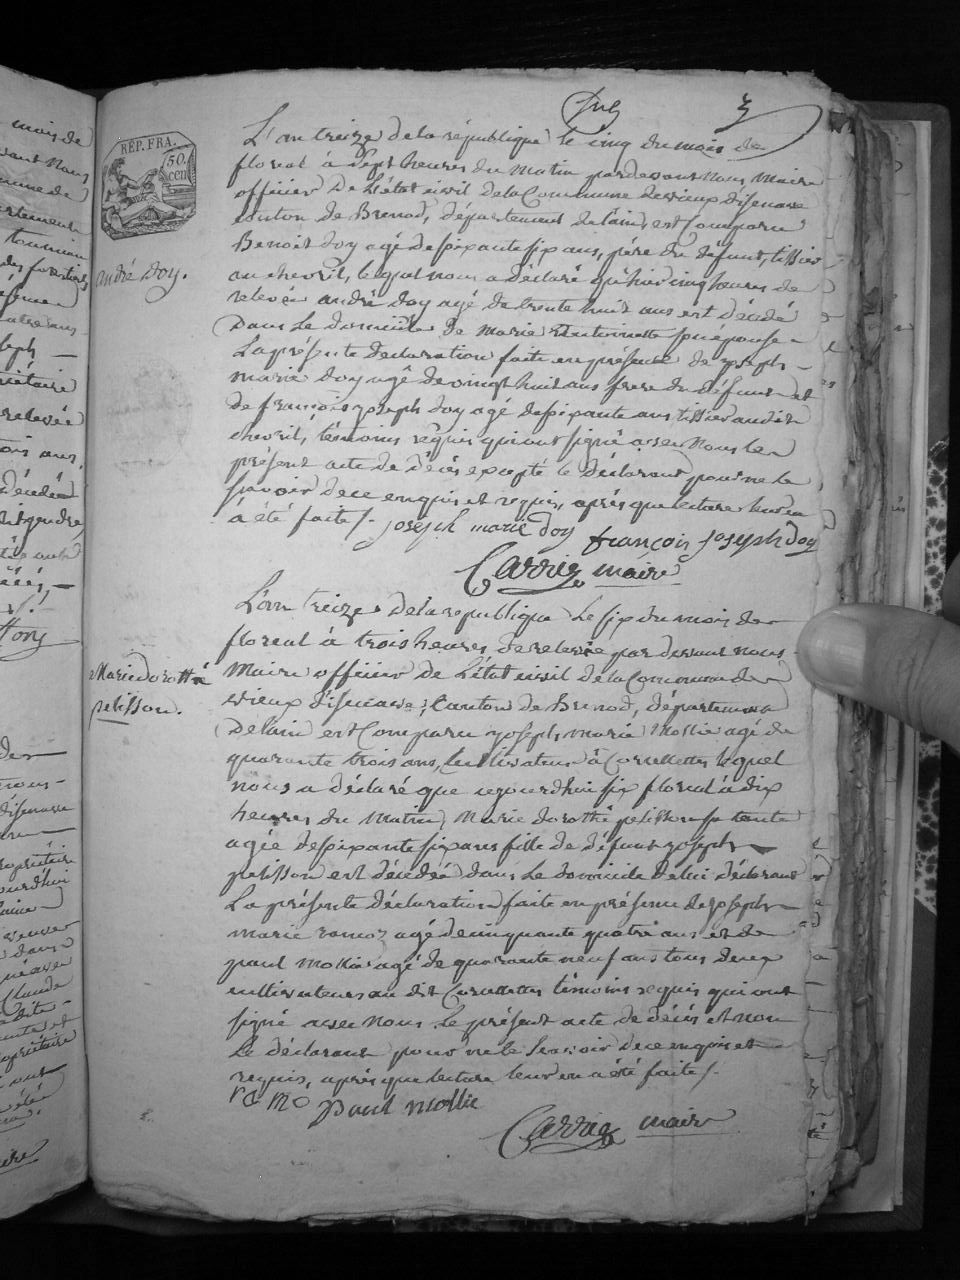 RÉP. FRA.
50.
cen
3
L'an treize de la république le cinq du mois de
floréal à sept heures du matin pardevant nous maire
officier De L'état civil de la Commune de vieux d'isenave
Canton de Brenod, département de lain, est Comparu
Benoit Doy agé de soixante six ans, père du defunt, tissier
au chevril, lequel nous a déclaré qu'hier cinq heures de
relevée andré doy agé de trente huit ans est décédé
Dans Le domicile de marie son épouse
La présente Declaration faite en présence de joseph
marie doy agé de vingt huit ans frere du défunt et
de françois joseph doy agé de soixante ans tissier audit
chevril, témoins réquis qui ont signé avec nous le
présent acte de décés excepté le déclarant pour ne le
savoir de ce enquis et requis, après que lecture leur en
a été faite /.
andré Doy.
joseph marie doy
françois joseph doy
Carrier maire
L'an treize De la republique Le six du mois de
floreal à trois heures de relevée par devant nous
Maire officier de L'état civil de la Commune de
vieux d'isenave, Canton de Brenod, département
De lain est Comparu joseph marie Mollie agé de
quarante trois ans, Cultivateur à Corcellettes lequel
nous a déclaré que cejourdhui six floréal à dix
heures du matin, Marie dorothé pelisson sa tante
agée de soixante six ans fille de défunt joseph
pelisson est décédée dans Le domicile de lui déclarant
La présente déclaration faite en présence de joseph
marie ramoz agé de cinquante quatre ans et de
paul mollie agé de quarante neuf ans tous deux
cultivateurs au dit Corcellettes témoins requis qui ont
signé avec nous Le présent acte de décés et non
Le déclarant pour ne le Savoir de ce enquis et
requis, après que lecture leur en a été faite /.
Marie dorothé
pelisson.
r a m o
paul mollie
Carrier maire